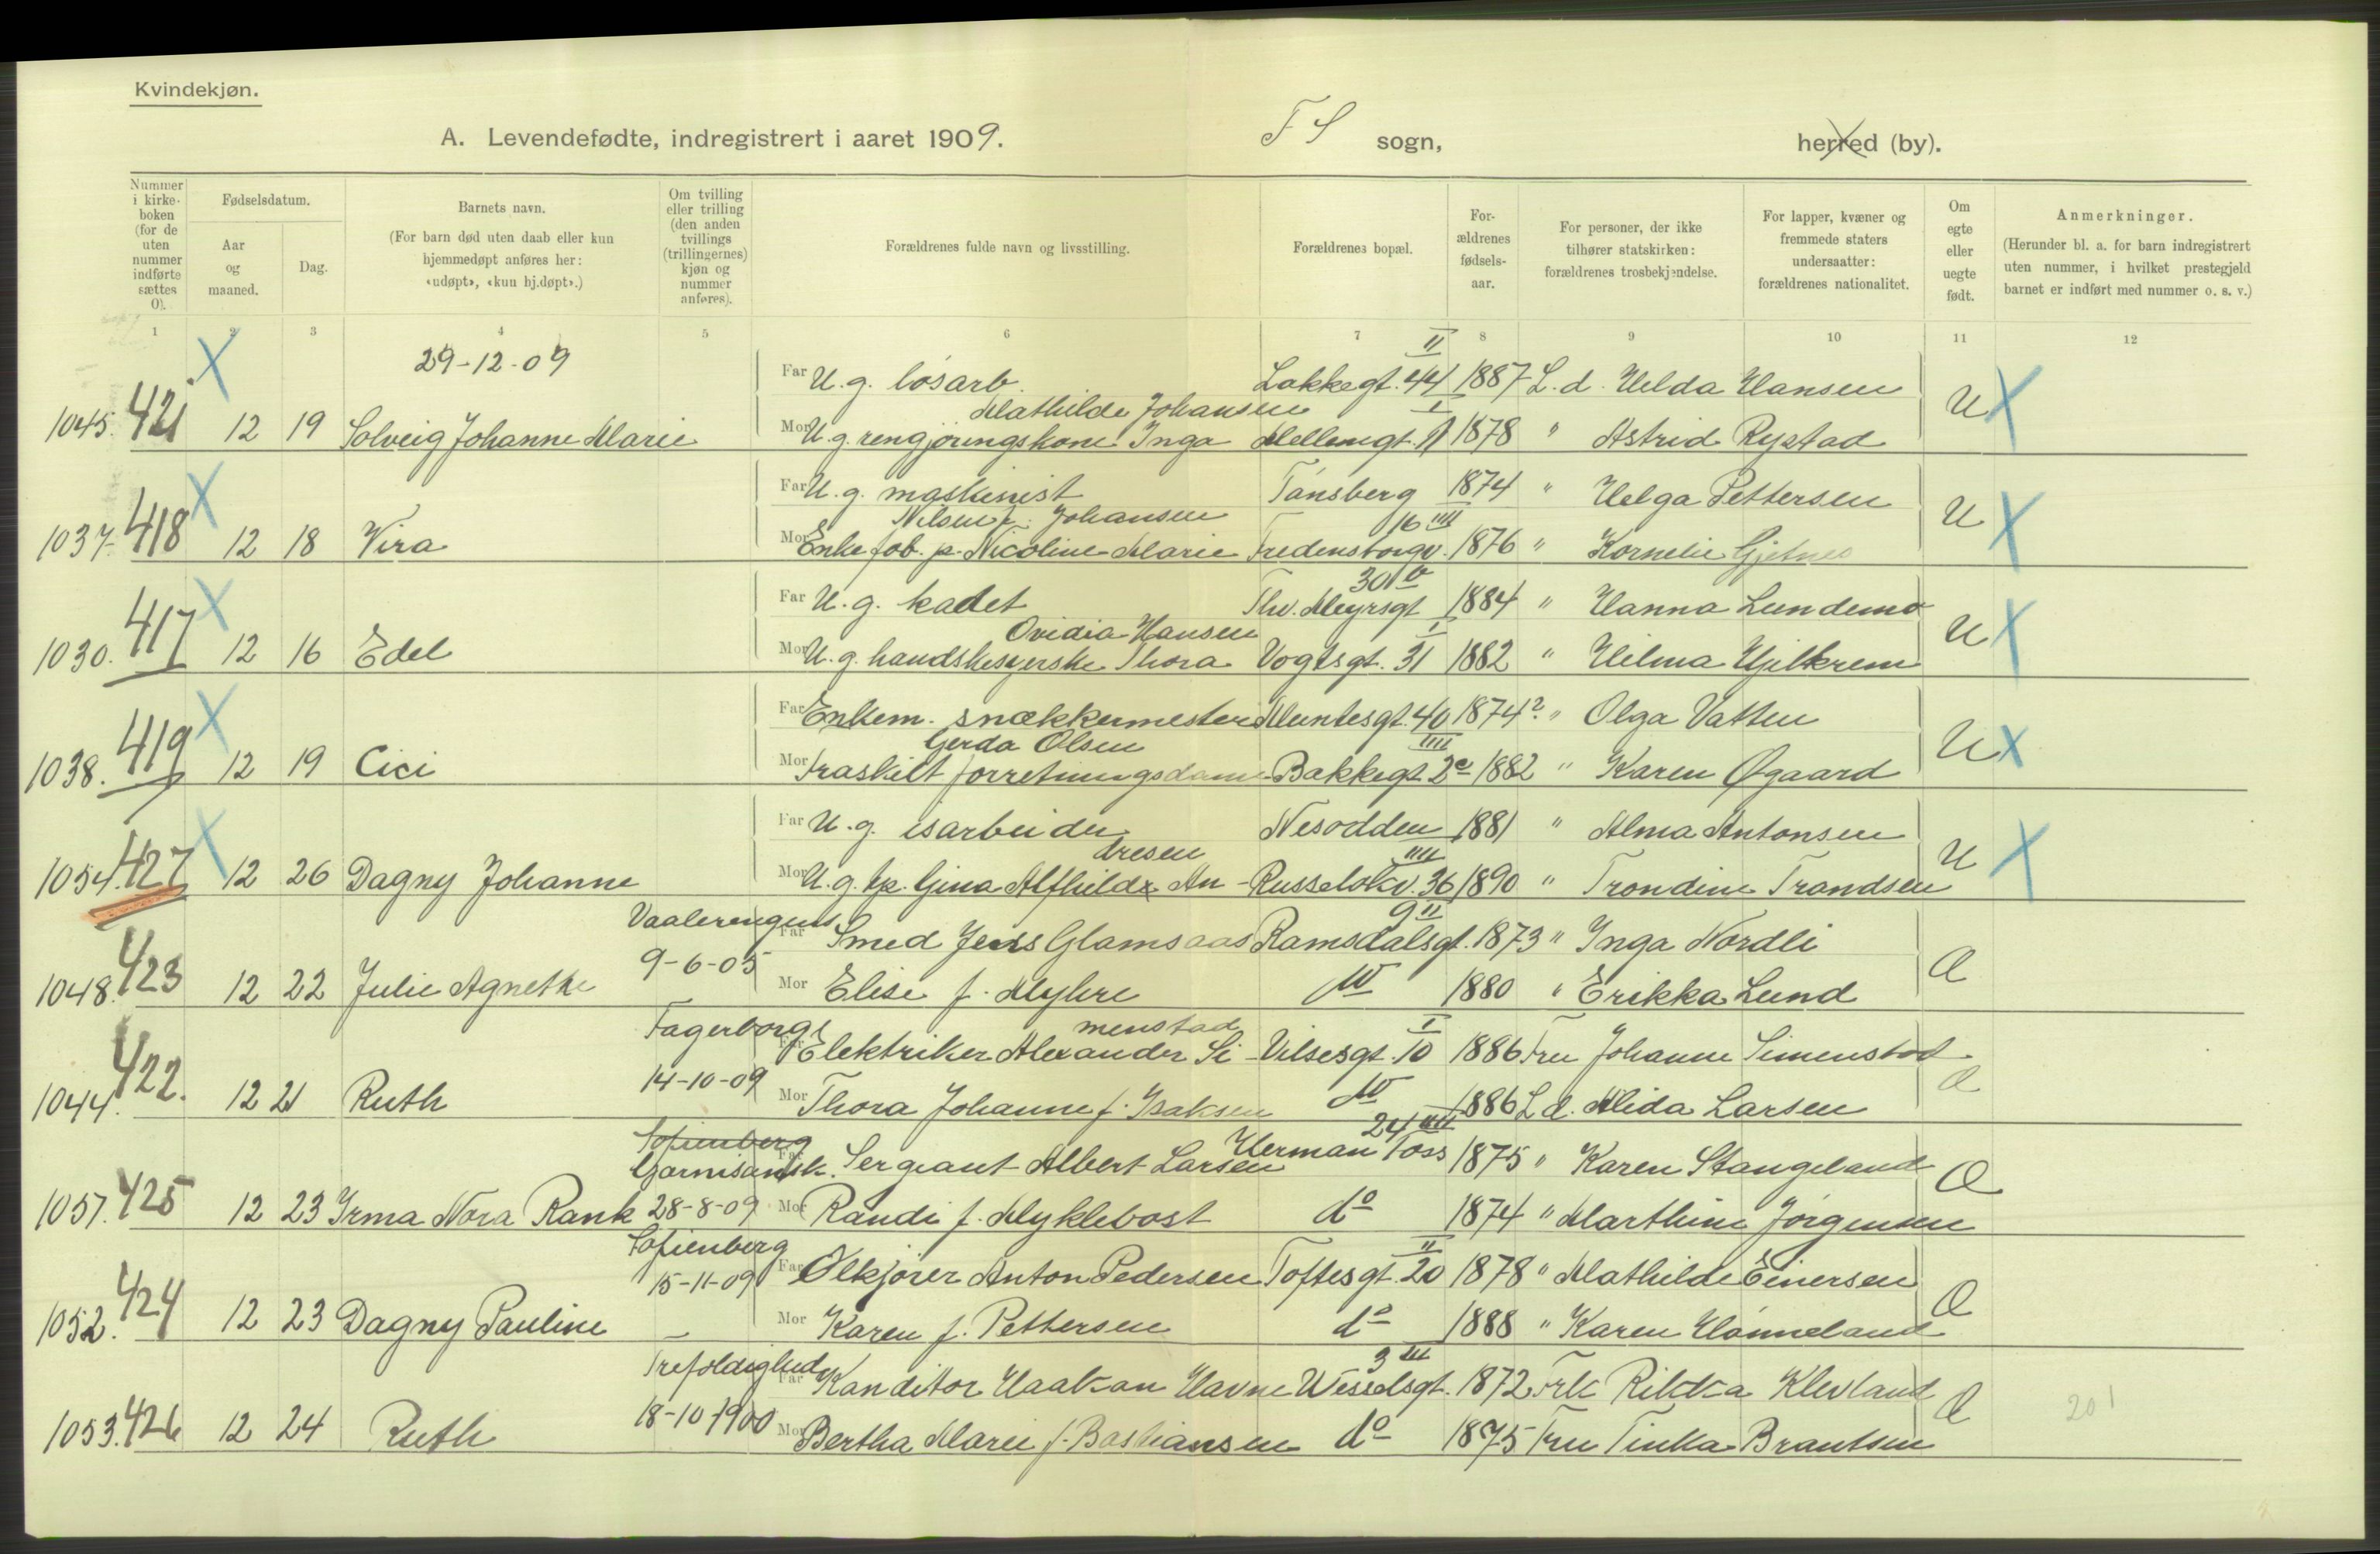 Kvindekjøn.
A. Levendefødte, indregistrert i aaret 1909. F S sogn, herred (by).
Nummer i kirke-boken (for de uten nummer indførte sættes 0).
Fødselsdatum.
Aar og maaned.
Dag.
Barnets navn.
(For barn død uten daab eller kun hjemmedøpt anføres her: «udøpt», «kun hj.døpt».)
Om tvilling eller trilling (den anden tvillings (trillingernes) kjøn og nummer anføres).
Forældrenes fulde navn og livsstilling.
Forældrenes bopæl.
For-ældrenes fødsels-aar.
For personer, der ikke tilhører statskirken: forældrenes trosbekjendelse.
For lapper, kvæner og fremmede staters undersaatter: forældrenes nationalitet.
Om egte eller uegte født.
Anmerkninger.
(Herunder bl. a. for barn indregistrert uten nummer, i hvilket prestegjeld barnet er indført med nummer o. s. v.)
1 2 3 4 5 6 7 8 9 10 11 12
29-12-09
Far U. g. løsarb. Lakkegt. 44 II 1887 L. d. Helda Hansen
Mathilde Johansen I
1045. 421 12 19 Solveig Johanne Marie Mor U. g. rengjøringskone Inga Mellemgt. 1878 " Astrid Rystad U
Far U. g. maskinist Tønsberg 1874 " Helga Pettersen
Nilsen f. Johansen 16 IIII
1037. 418 12 18 Vira Mor Enke fab. p. Nicoline Marie Fredensborgv. 1876 " Kornelie Gjetnes U
30 IV
Far U. g. kadet Thv. Meyrsgt 1884 " Hanna Lundemo
Ovidia Hansen I
1030. 417 12 16 Edel Mor U. g. handskesyerske Thora Vogtsgt. 31 1882 " Hilma Hjelkrem U
Far Enkem. snækkermester Muntesgt. 40 1874? " Olga Vatten
Gerda Olsen IIII
1038. 419 12 19 Cici Mor Fraskilt forretningsdame Bakkegt. 2c 1882 " Karen Øgaard U
Far U. g. isarbeider Nesodden 1881 " Alma Antonsen
dresen IIII
1054. 427 12 26 Dagny Johanne Mor U. g. tp. Gina Alfhilda An- Russeløkv. 36 1890 " Trondine Trandsen U
Vaalerengens 9 II
Far Smed Jens Glamsaas Ramsdalsgt. 1873 " Inga Nordli
9-6-05
1048. 423 12 22 Julie Agnethe Mor Elise f. Myhre do 1880 " Erikka Lund Æ
Fagerborgs menstad I
Far Elektriker Alexander Si- Vilsesgt. 10 1886 Fru Johanne Simenstad
14-10-09
1044. 422. 12 21 Ruth Mor Thora Johanne f. Isaksen do 1886 L. d. Alida Larsen Æ
Sofienberg 24 IIII
Garnisonsk. Far Sergeant Albert Larsen Herman Foss 1875 " Karen Stangeland
1051. 425 12 23 Irma Nora Rank 28-8-09 Mor Randi f. Myklebost do 1874 " Marthine Jørgensen Æ
Sofienberg II
15-11-09 Far Ølkjører Anton Pedersen Toftesgt. 20 1878 " Mathilde Einersen
1052. 424 12 23 Dagny Pauline Mor Karen f. Pettersen do 1888 " Karen Hønneland Æ
Trefoldighed 3 III
Far Konditor Haakon Havne Wesselsgt. 1872 Frk Rikka Klevland
18-10-1900
1053. 426 12 24 Ruth Mor Bertha Marie f. Bastiansen do 1875 Fru Tinka Brantsen Æ
201